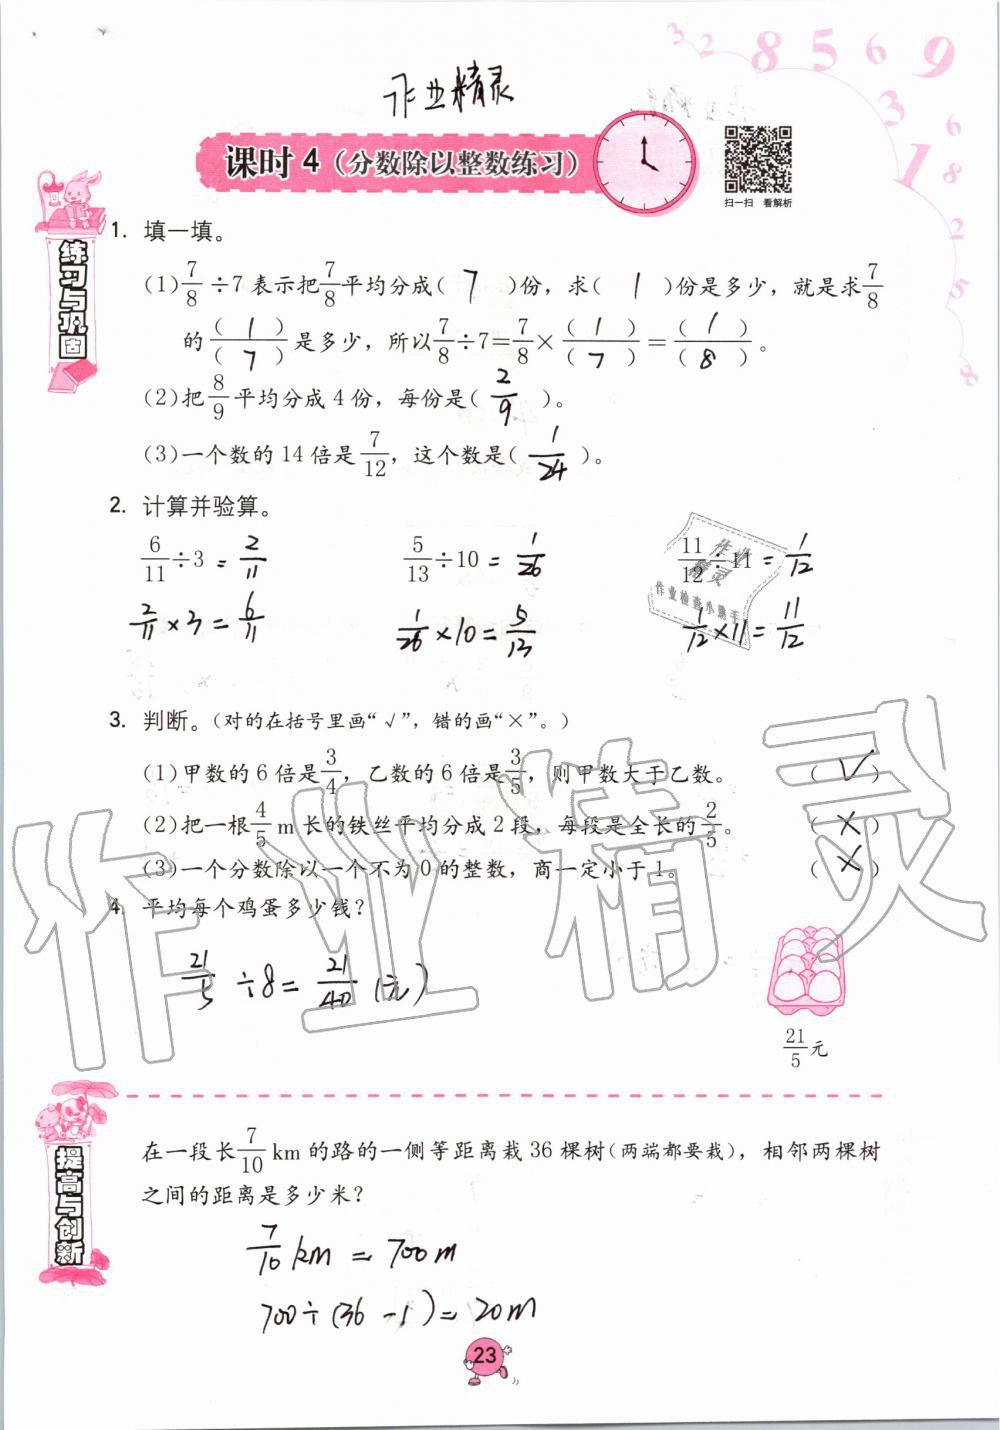 3 2 8 5 6 9 3 1 6 8 2 5 3 8
作业精灵
课时4（分数除以整数练习）
扫一扫 看解析
练习与巩固
1. 填一填。
(1) 7/8 ÷7表示把 7/8 平均分成( 7 )份，求( 1 )份是多少，就是求 7/8
的 (1)/(7) 是多少，所以 7/8 ÷7= 7/8 × (1)/(7) = (1)/(8) 。
(2)把 8/9 平均分成4份，每份是( 2/9 )。
(3)一个数的14倍是 7/12，这个数是( 1/24 )。
2. 计算并验算。
6/11 ÷3 = 2/11   5/13 ÷10 = 1/26   11/12 ÷11 = 1/12
2/11 ×3 = 6/11   1/26 ×10 = 5/13   1/12 ×11 = 11/12
作业
精灵
作业检查小助手
3. 判断。（对的在括号里画“√”，错的画“×”。）
(1)甲数的6倍是 3/4，乙数的6倍是 3/5，则甲数大于乙数。 ( √ )
(2)把一根 4/5 m长的铁丝平均分成2段，每段是全长的 2/5。 ( × )
(3)一个分数除以一个不为0的整数，商一定小于1。 ( × )
4. 平均每个鸡蛋多少钱？
21/5 ÷8 = 21/40 (元)
21/5 元
作业精灵
提高与创新
在一段长 7/10 km的路的一侧等距离栽36棵树(两端都要栽)，相邻两棵树
之间的距离是多少米？
7/10 km = 700m
700÷(36-1)=20m
23